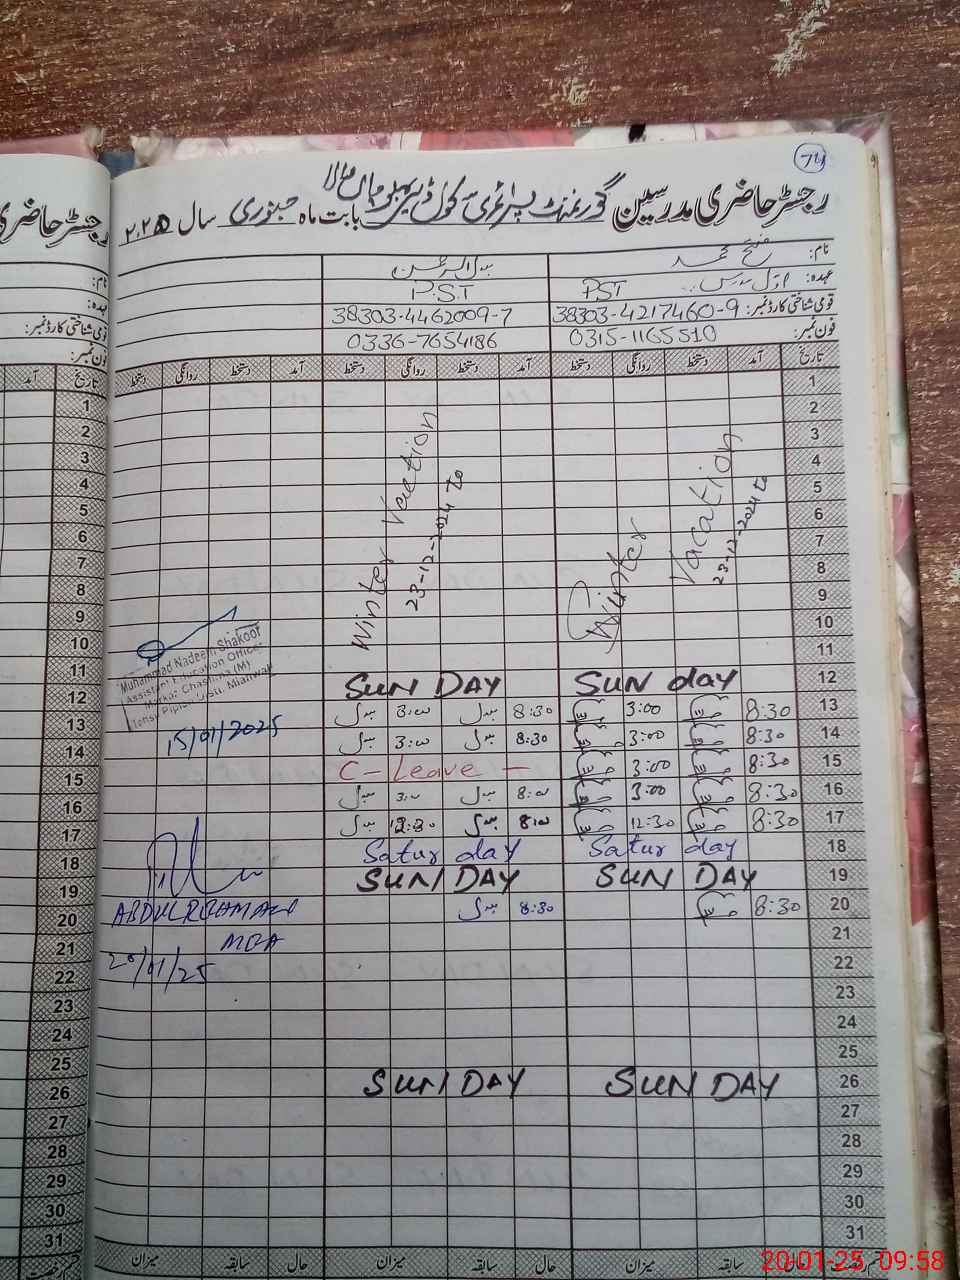 74
رجسٹر حاضری مدرسین گورنمنٹ پرائمری سکول ڈیرہ والا بابت ماہ جنوری سال ۲۰۲۵
نام: فتح محمد
عہدہ: اول مدرس PST P.S.T
قومی شناختی کارڈ نمبر: 38303-4217460-9 38303-4462009-7
فون نمبر: 0315-1165510 0336-7654186
تاریخ آمد دستخط روانگی دستخط آمد دستخط روانگی دستخط آمد دستخط روانگی دستخط
1
2
3
4
5
6
7
8
9
10
11
Winter Vacation
23-12-2024 to
Winter Vaction
23-12-2024 To
12 SUN day SUN DAY
13 8:30 3:00 8:30 3:00
14 8:30 3:00 8:30 3:00
15 8:30 3:00 C - Leave -
16 8:30 3:00 8:00 3:00
17 8:30 12:30 8:00 12:30
18 Satur day Satur day
19 SUN DAY SUN DAY
20 8:30 8:30
21
22
23
24
25
26 SUN DAY SUN DAY
27
28
29
30
31
حال سابقہ میزان حال سابقہ میزان حال سابقہ میزان
Muhammad Nadeem Shakoor
Assistant Education Officer
Markaz Chashma (M)
Tehsil Piplan Distt. Mianwali
15/01/2025
ABDUL REHMAN
MEA
20/01/25
رجسٹر حاضری
نام:
عہدہ:
قومی شناختی کارڈ نمبر:
فون نمبر:
تاریخ آمد
1
2
3
4
5
6
7
8
9
10
11
12
13
14
15
16
17
18
19
20
21
22
23
24
25
26
27
28
29
30
31
قسم رخصت
20-01-25 09:58